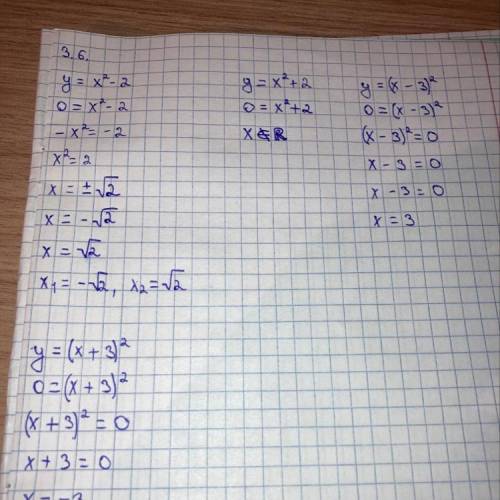 3.6.
y = x² - 2
0 = x² - 2
- x² = -2
x² = 2
x = ±√2
x = -√2
x = √2
x₁ = -√2, x₂ = √2
y = x² + 2
0 = x² + 2
x ∉ R
y = (x - 3)²
0 = (x - 3)²
(x - 3)² = 0
x - 3 = 0
x - 3 = 0
x = 3
y = (x + 3)²
0 = (x + 3)²
(x + 3)² = 0
x + 3 = 0
x = -3